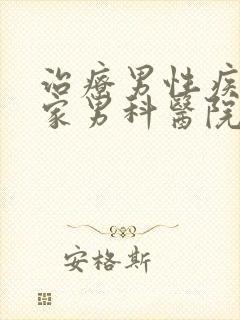 治療男性疾
家男科醫院
安格斯